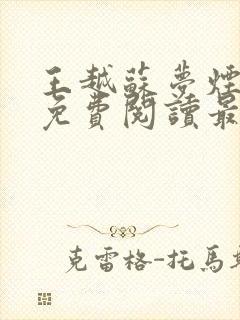 王越蘇夢煙
免費閱讀最
克雷格-托馬斯